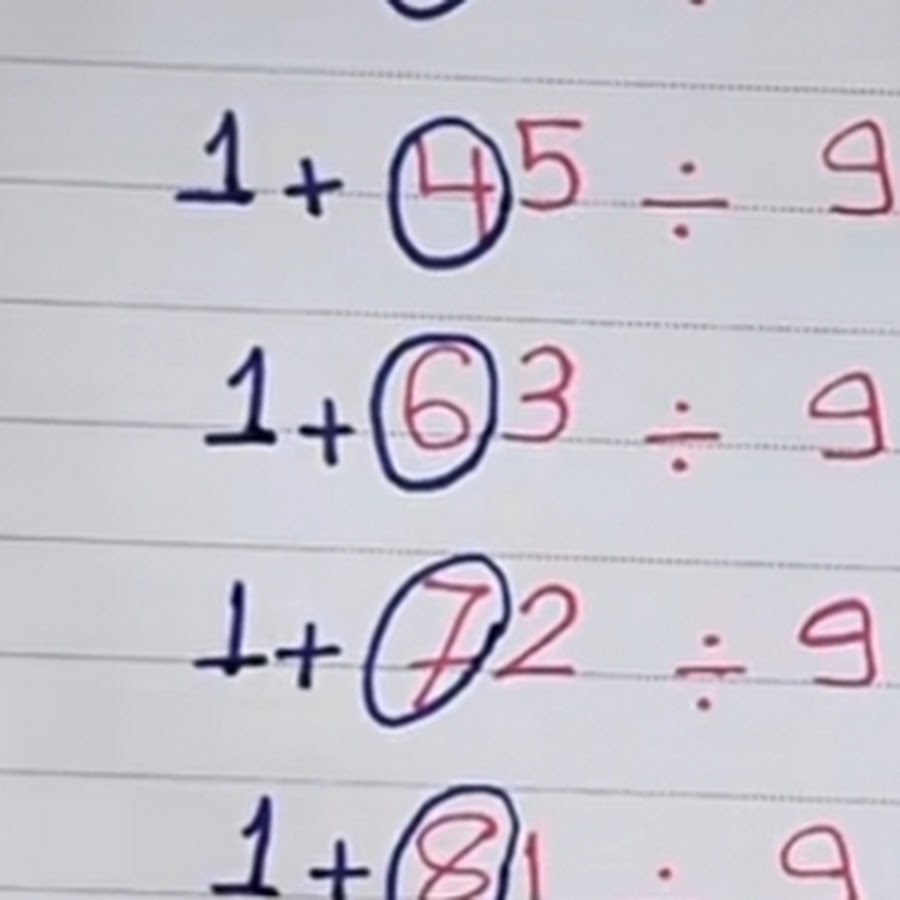 1 + 45 ÷ 9
1 + 63 ÷ 9
1 + 72 ÷ 9
1 + 81 ÷ 9